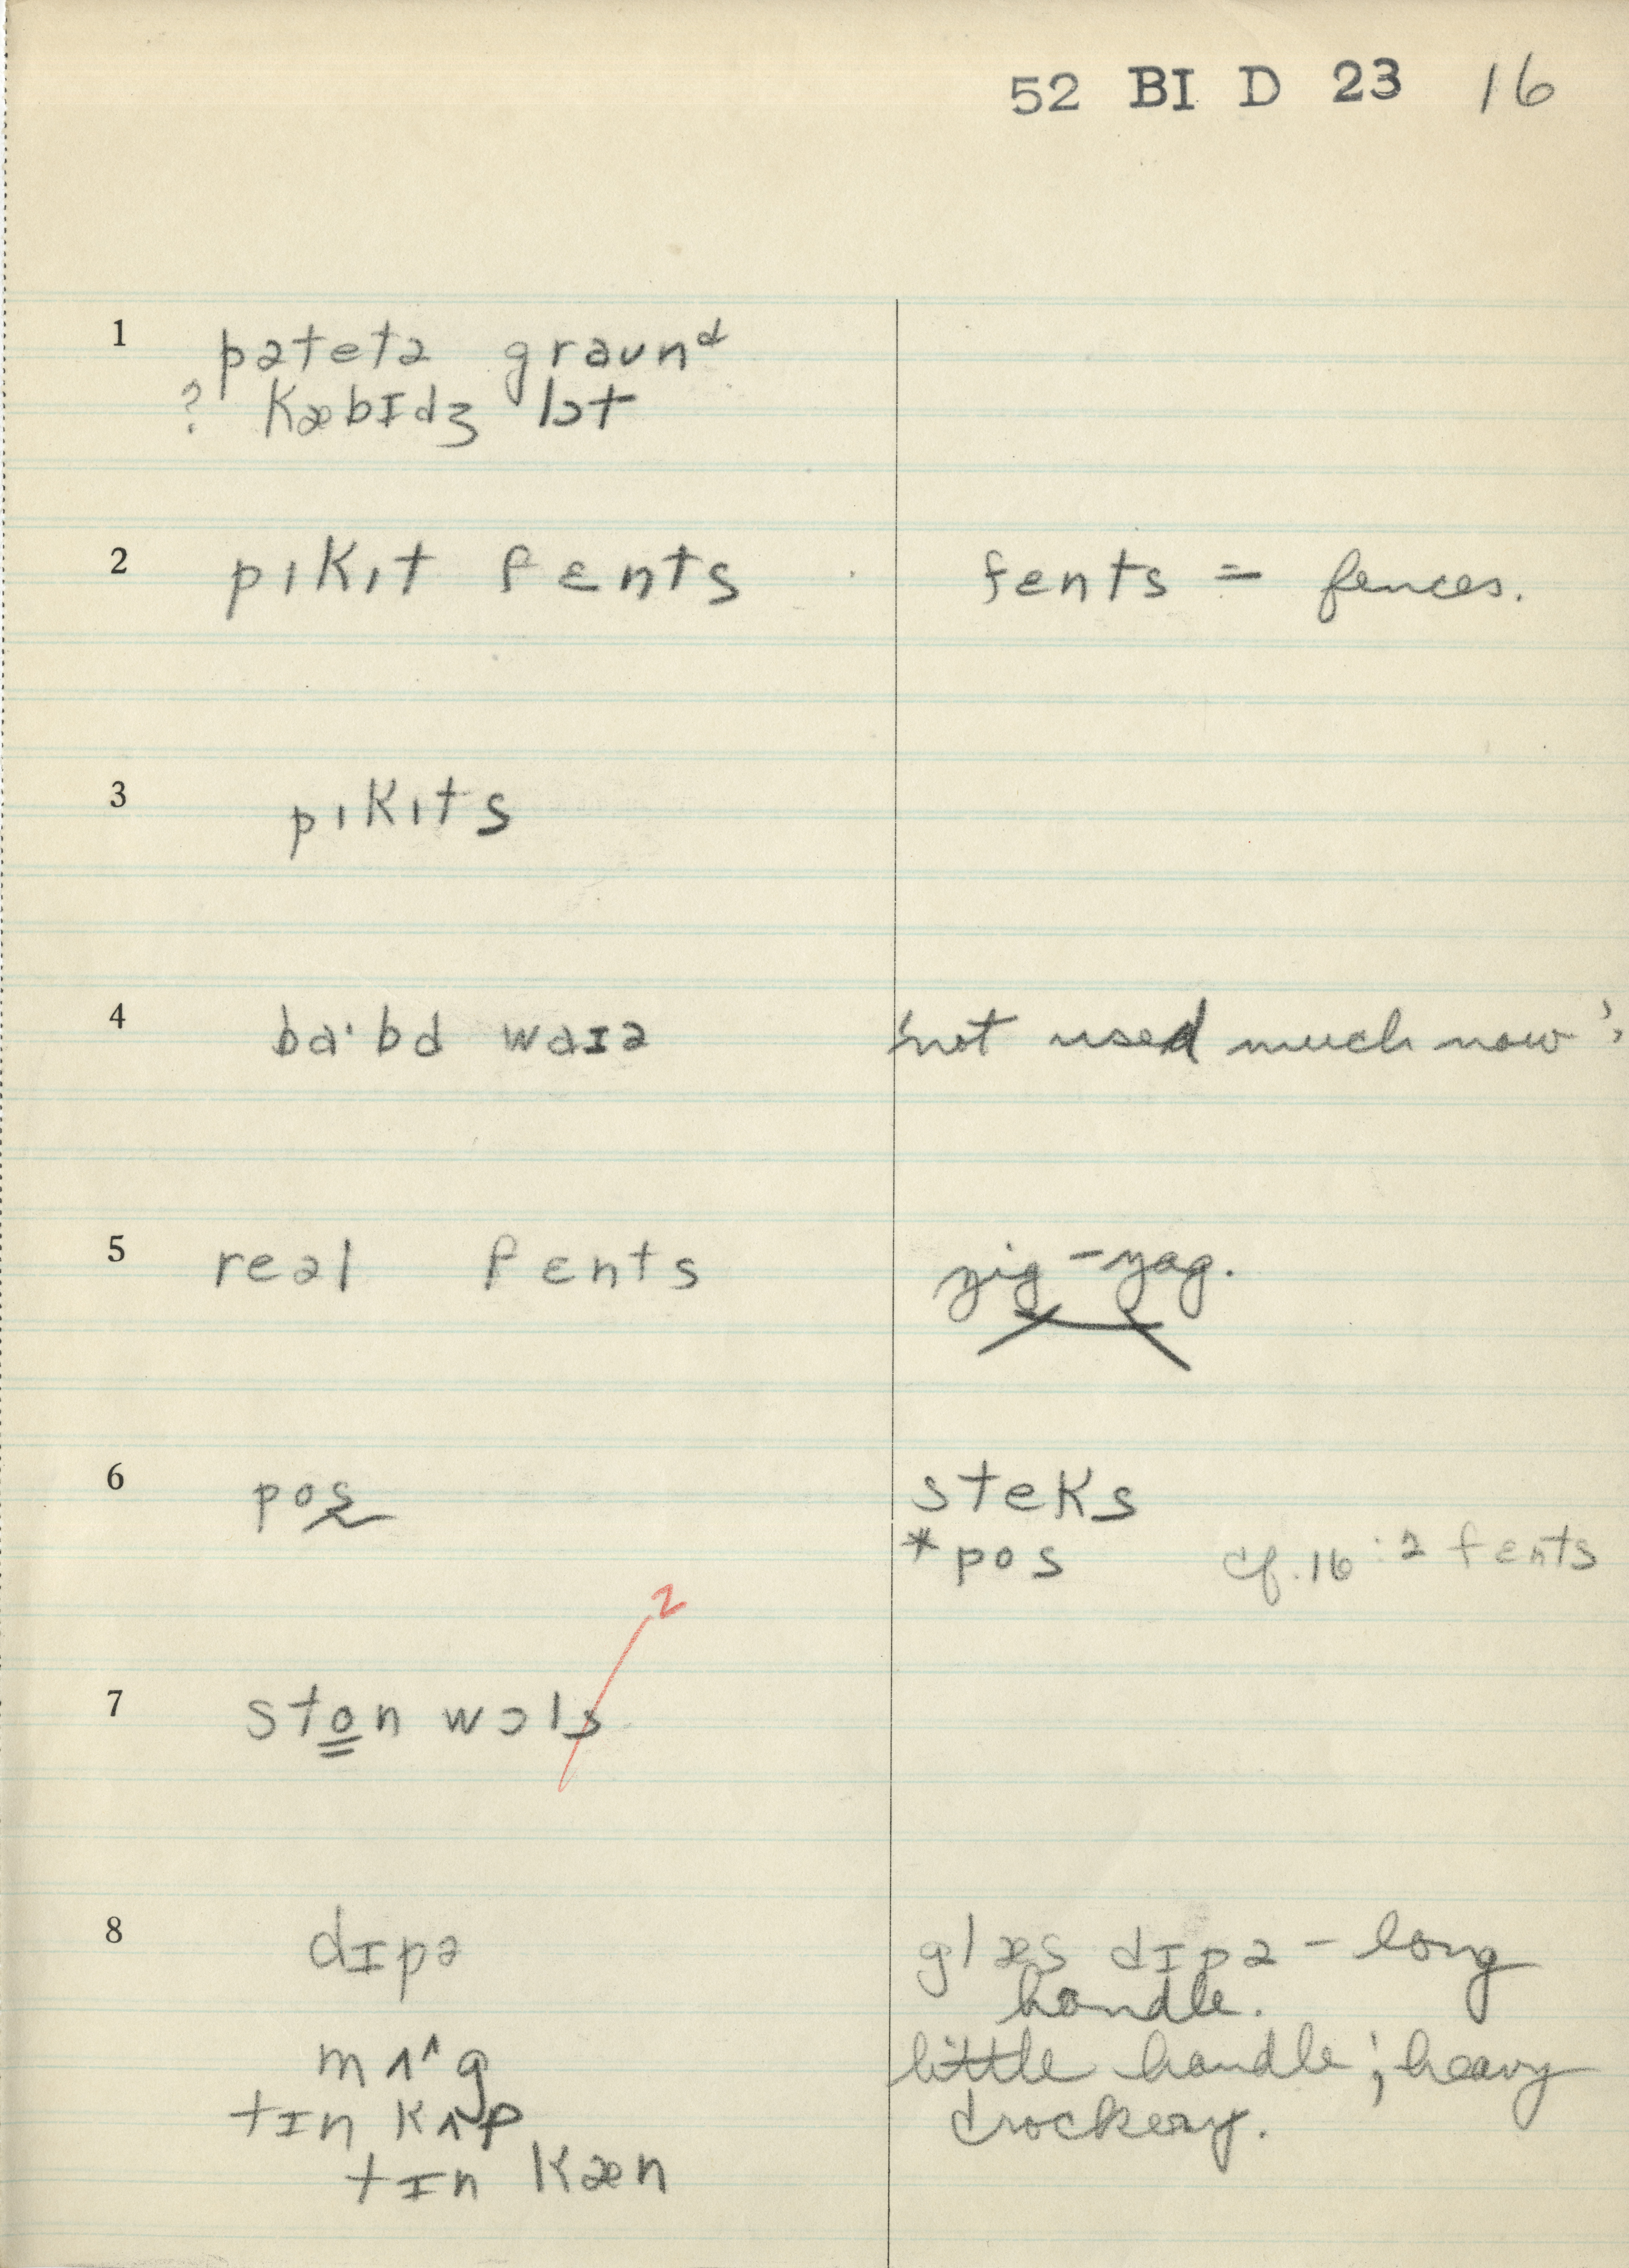 52 BI D 23 16
1 pətetə graʊnᵈ
? kæbɪdʒ lɔt
2 pıkıt fɛnts fɛnts = fences.
3 pıkıts
4 ba·bd waɪə 'not used much now'
5 reəl fɛnts zig-zag.
6 pos steks
*pos cf. 16:2 fɛnts
2
7 ston wɔls
8 dɪpə glæs dɪpə – long
handle.
mʌ^g little handle; heavy
tɪn kʌp crockery.
tɪn kæn